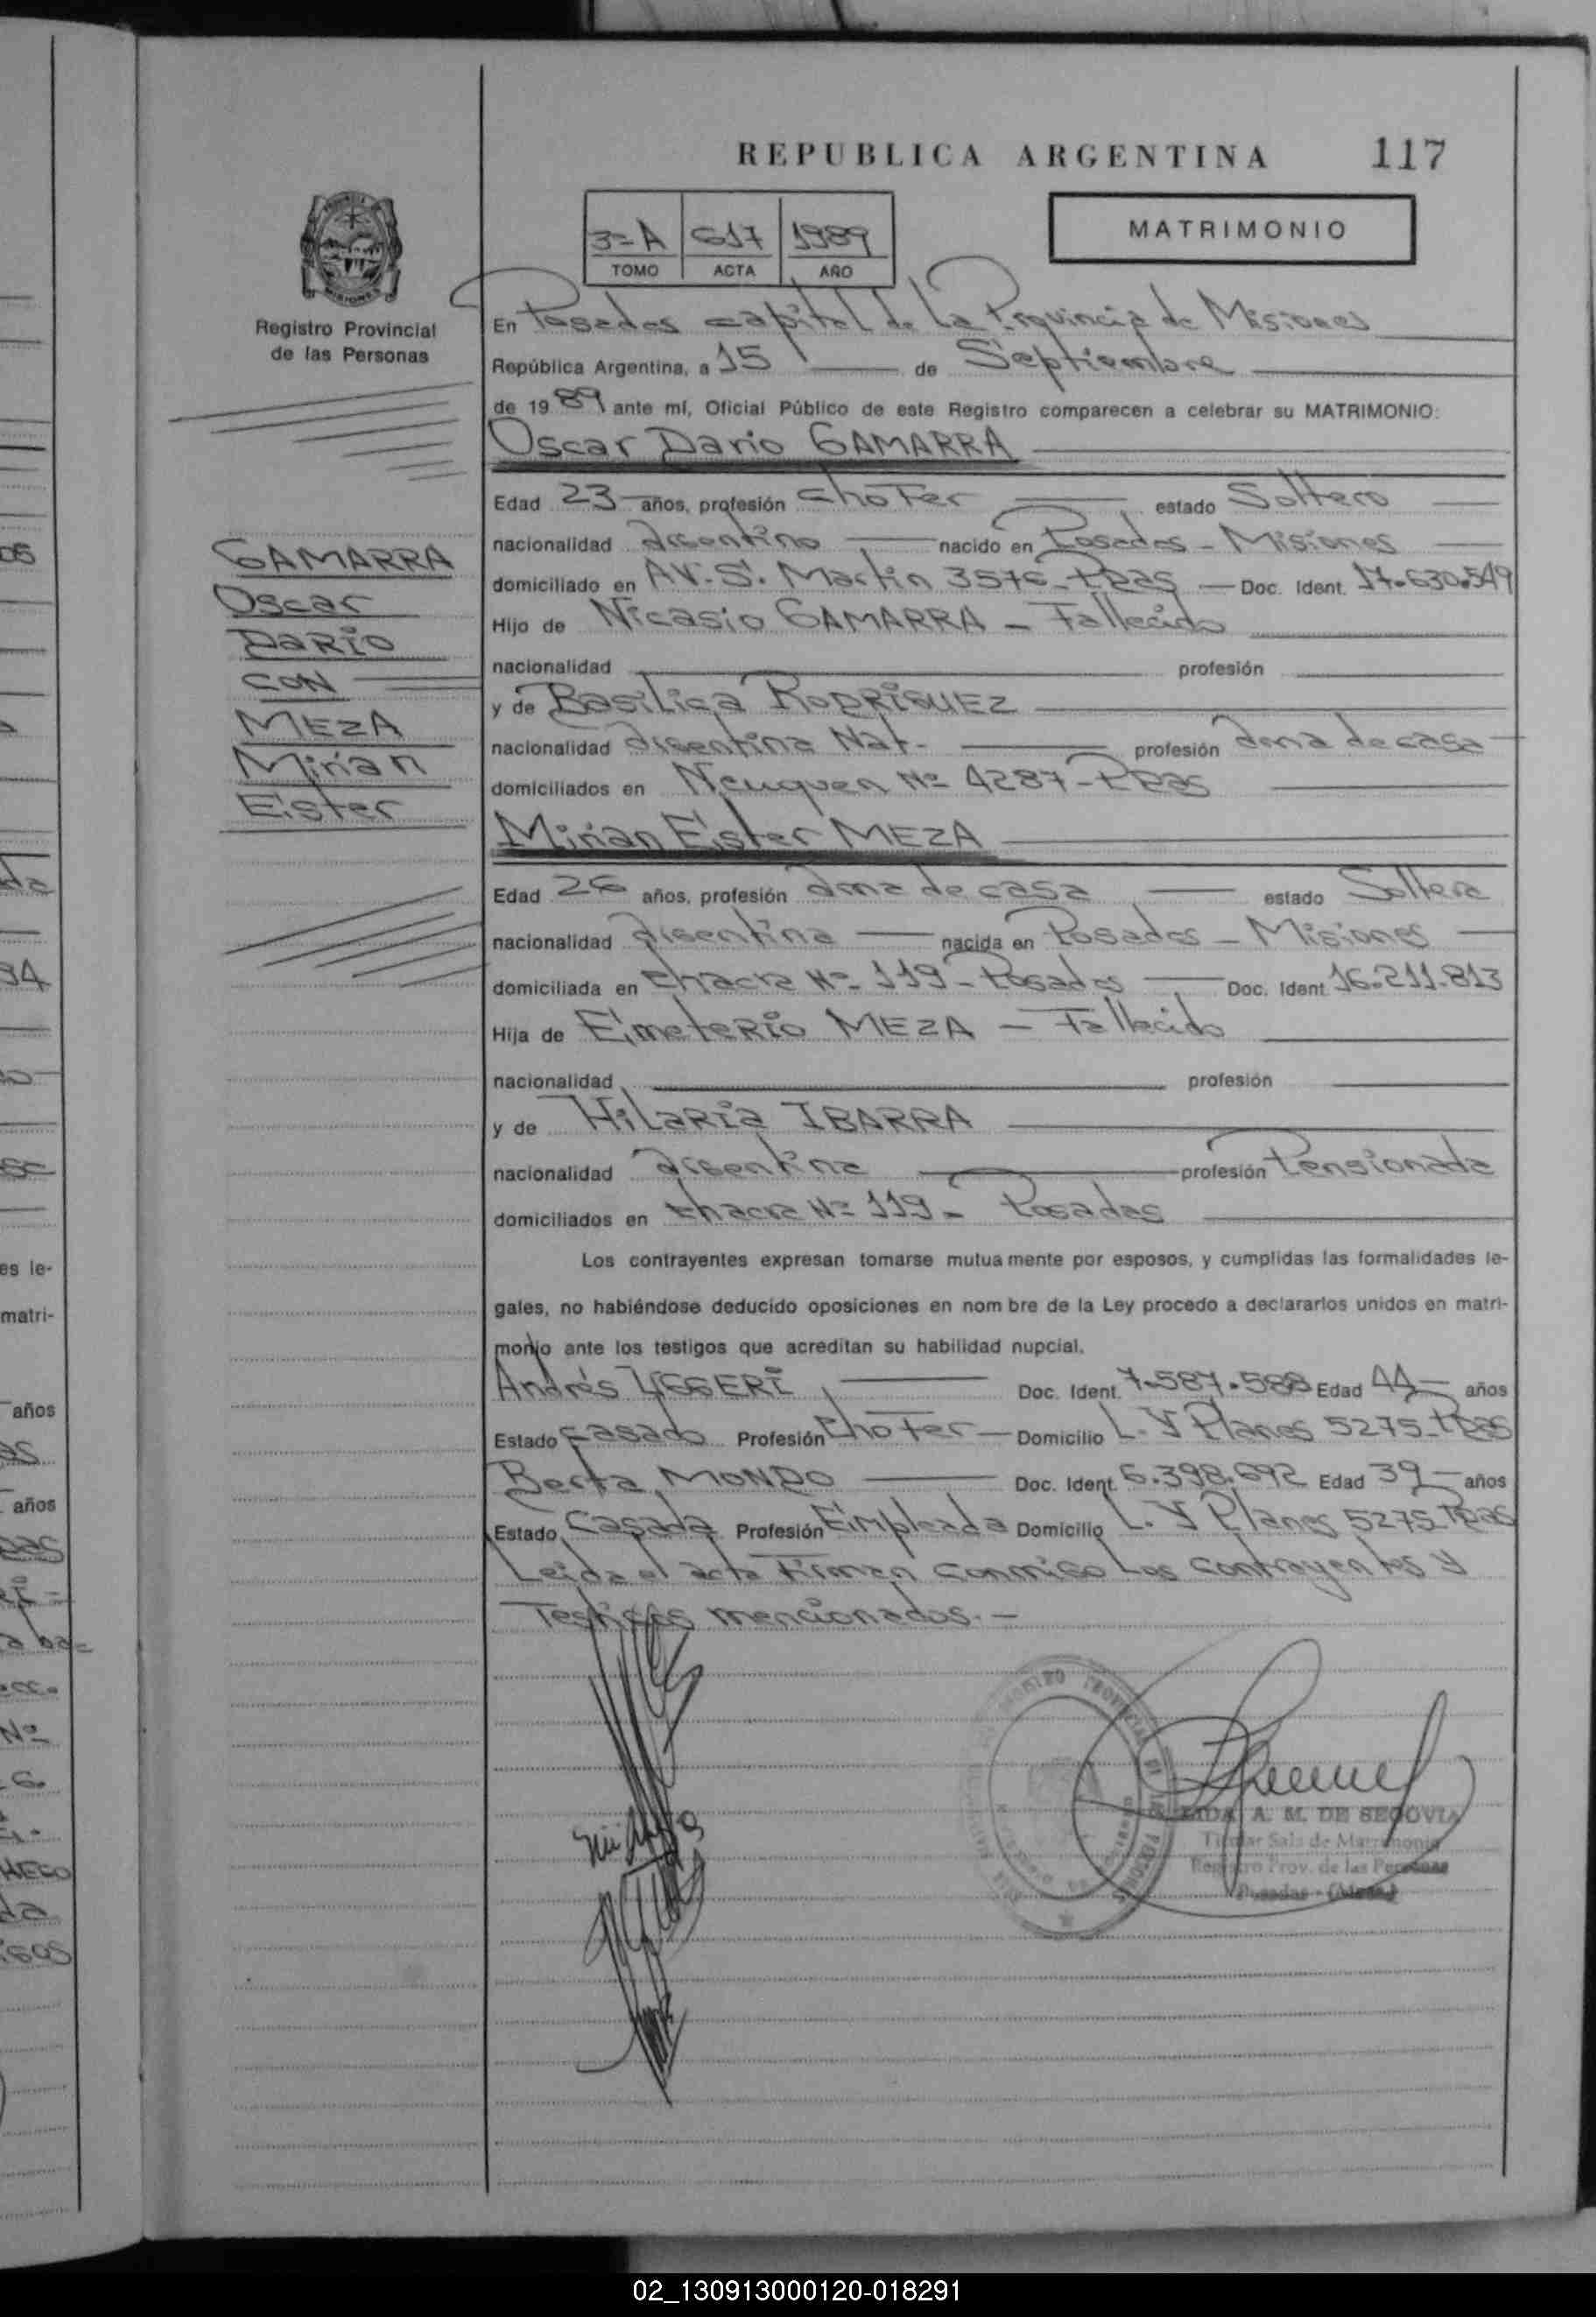 REPUBLICA ARGENTINA 117
3=A 617 1989
TOMO ACTA AÑO
MATRIMONIO
Registro Provincial
de las Personas
En Posadas capital de la Provincia de Misiones
República Argentina, a 15 de Septiembre
de 1989 ante mí, Oficial Público de este Registro comparecen a celebrar su MATRIMONIO:
Oscar Dario GAMARRA
Edad 23 años, profesión choFer estado Soltero
nacionalidad argentino nacido en Posadas - Misiones
domiciliado en AV. S. Martin 3576 - Pdas - Doc. Ident. 17.630.549
Hijo de Nicasio GAMARRA - Fallecido
nacionalidad profesión
y de Basilica RODRIGUEZ
nacionalidad argentina Nat. profesión ama de casa
domiciliados en Neuquen Nº 4287 - Pdas
Mirian Ester MEZA
Edad 26 años, profesión ama de casa estado Soltera
nacionalidad argentina nacida en Posadas - Misiones
domiciliada en chacra Nº 119 - Posadas Doc. Ident. 16.211.813
Hija de EmeteRio MEZA - Fallecido
nacionalidad profesión
y de HilaRia IBARRA
nacionalidad argentina profesión Pensionada
domiciliados en chacra Nº 119 - Posadas
Los contrayentes expresan tomarse mutua mente por esposos, y cumplidas las formalidades le-
gales, no habiéndose deducido oposiciones en nom bre de la Ley procedo a declararlos unidos en matri-
monio ante los testigos que acreditan su habilidad nupcial.
Andrés UGGERI Doc. Ident. 7.587.588 Edad 44 años
Estado casado Profesión choFer Domicilio L. Y Planes 5275 - Pdas
Berta MONDO Doc. Ident. 6.398.692 Edad 39 años
Estado Casada Profesión Empleada Domicilio L. Y Planes 5275 - Pdas
Leida el acta Firman conmigo los contrayentes y
Testigos mencionados. -
GAMARRA
Oscar
DARIO
CON
MEZA
Mirian
Ester
A. M. DE SEGOVIA
Titular Sala de Matrimonio
Registro Prov. de las Personas
Posadas - (Mnes.)
02_130913000120-018291